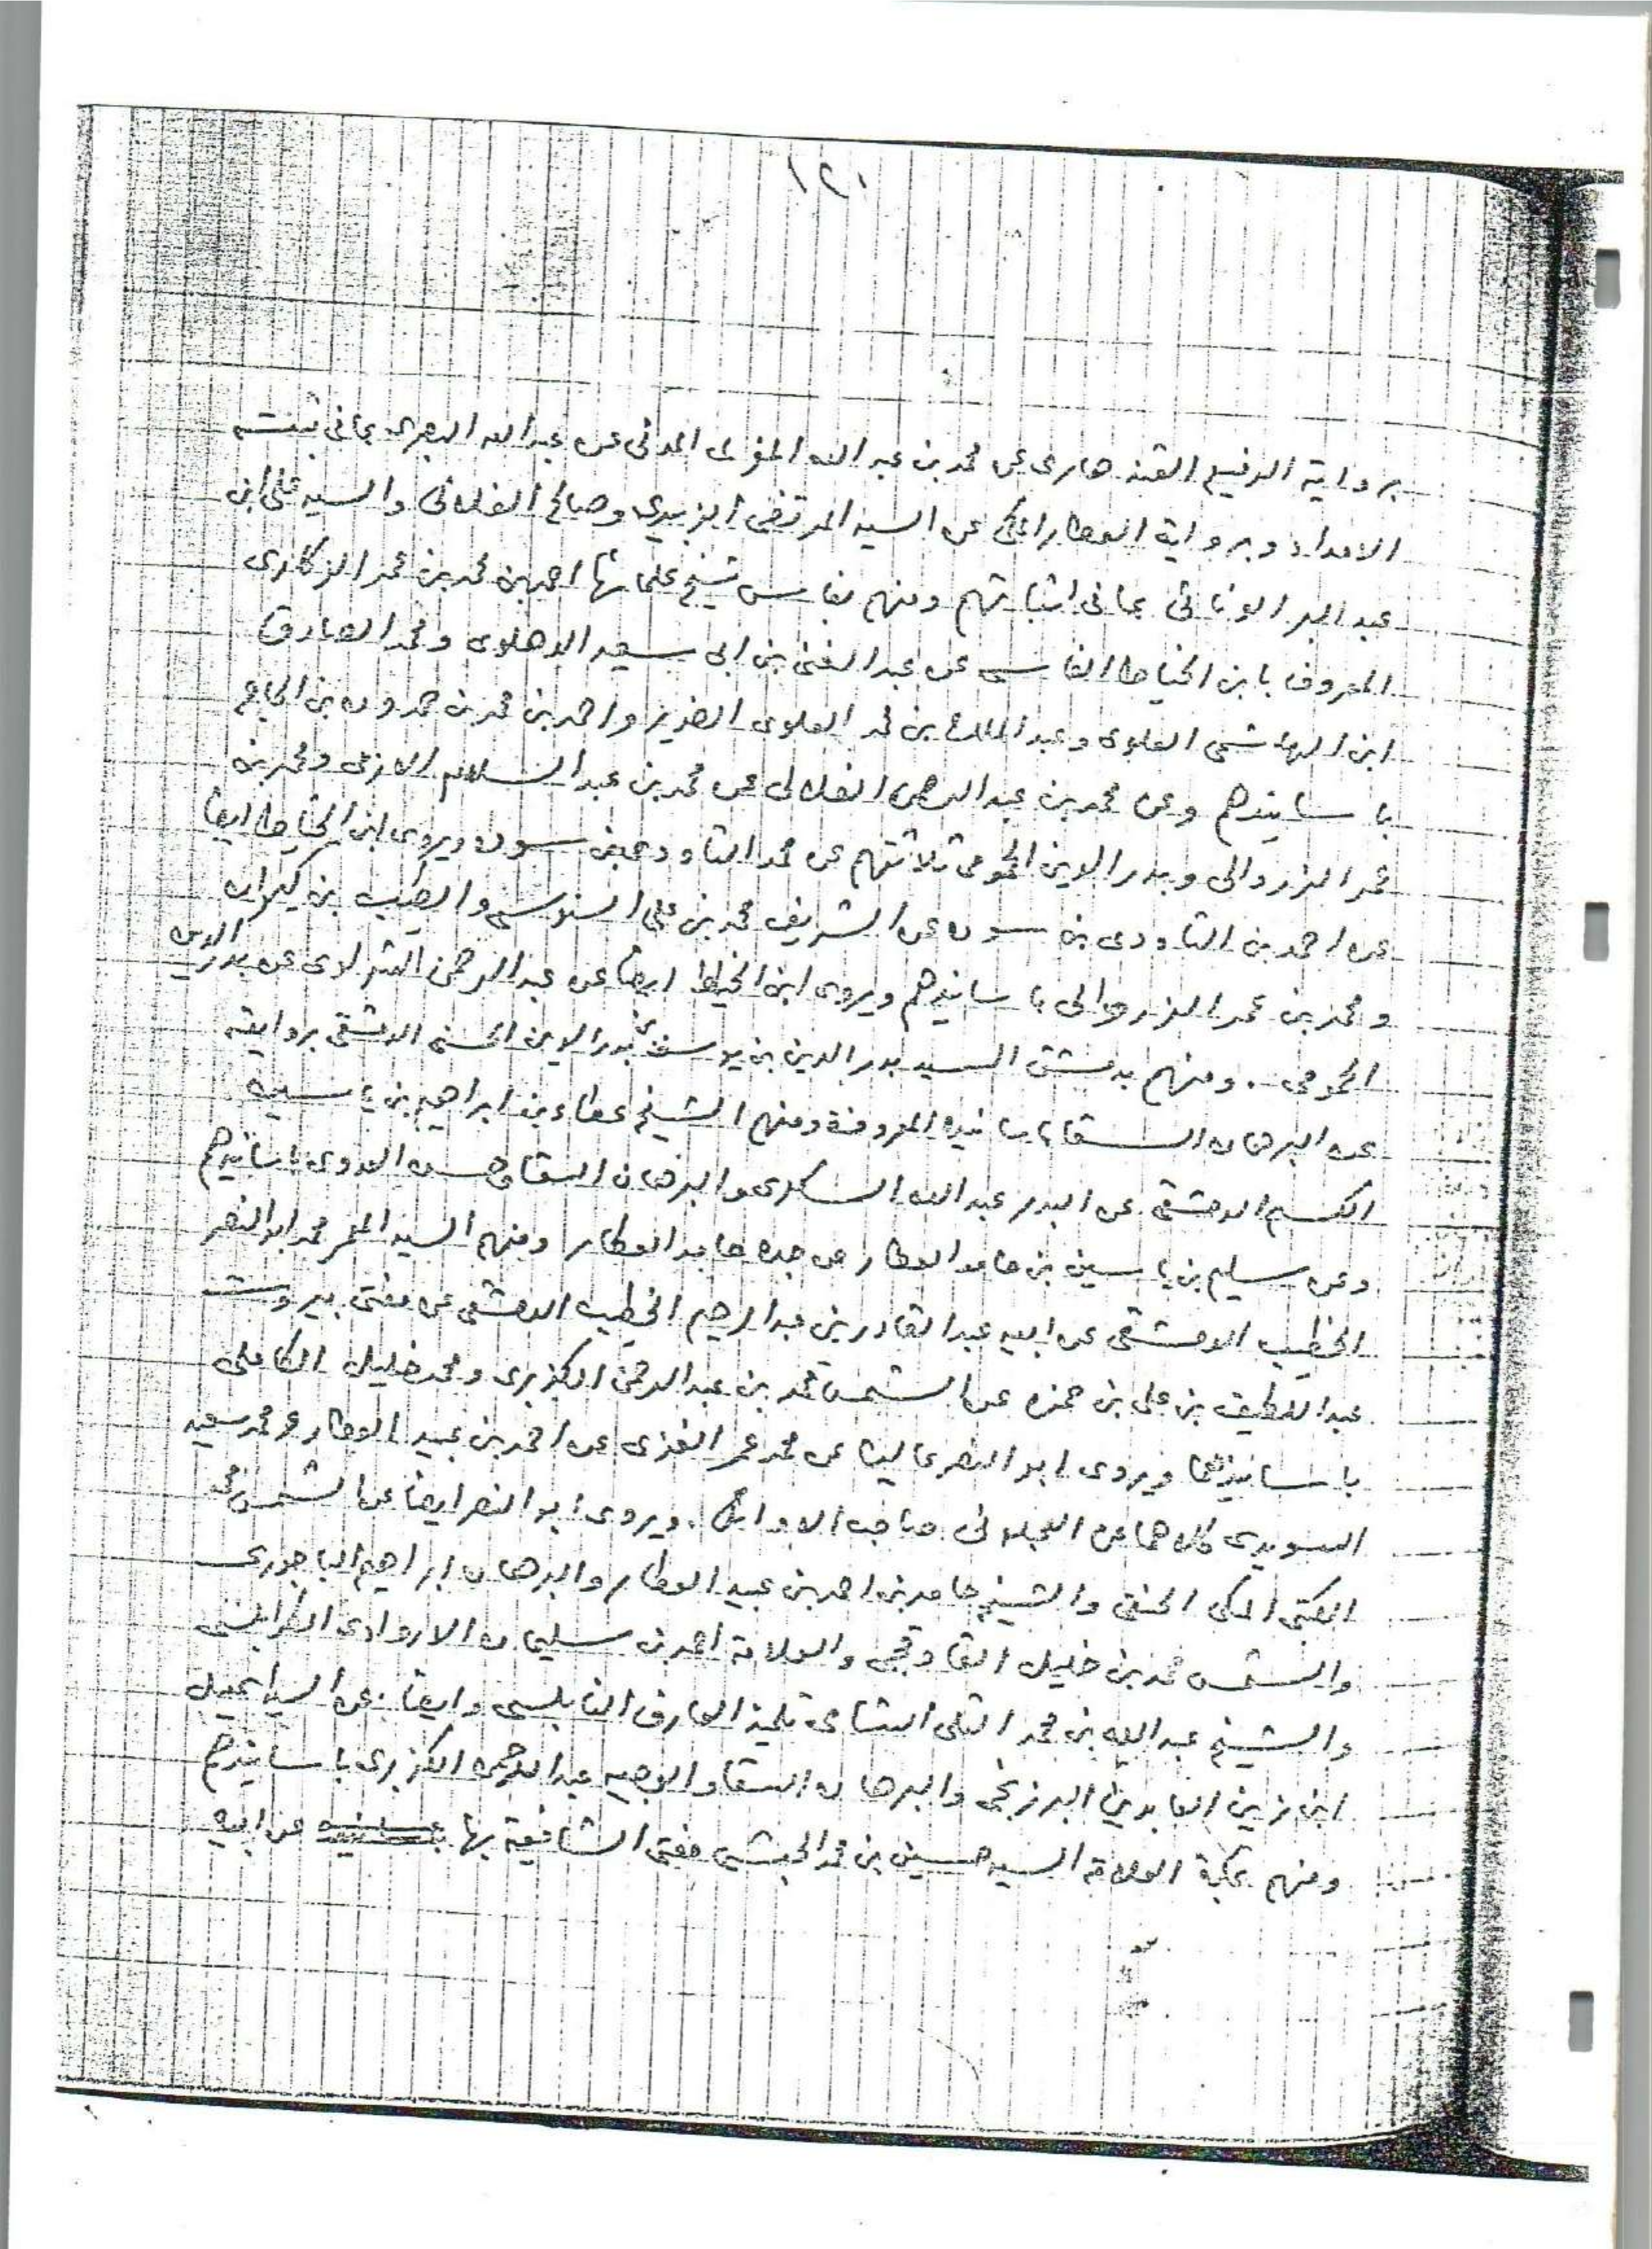 ١٢٠
برواية الرفيع القندهارى عن محمد بن عبد الله المغربى المدنى عن عبد الله البصرى بما فى ثبته
الامداد وبرواية العطار المكى عن السيد المرتضى الزبيدى وصالح الفلانى والسيد على ابن
عبد البر الونائى بما فى اثباتهم ومنهم بفاس شيخ علمائها احمد بن محمد بن عمر الزكارى
المعروف بابن الخياط الفاسى عن عبد الغنى بن ابى سعيد الدهلوى ومحمد الصادق
ابن الهاشمى العلوى وعبد الملك بن محمد العلوى الضرير واحمد بن محمد بن حمدون بن الحاج
باسانيدهم وعن محمد بن عبد الرحمن الفلالى عن محمد بن عبد السلام الازمى ومحمد بن
عمر الزروالى وبدر الدين الحمومى ثلاثتهم عن محمد التاودى بن سوده ويروى ابن الخياط ايضا
عن احمد بن التاودى بن سوده عن الشريف محمد بن على السنوسى والطيب بن كيران
ومحمد بن عمر الزروالى باسانيدهم ويروى ابن الخياط ايضا عن عبد الرحمن عن بدر الدين
الحمومى . ومنهم بدمشق السيد بدر الدين بن يوسف بن بدر الدين الحسنى الدمشقى بروايته
عن البرهان السقا باسانيده المعروفة ومنهم الشيخ عطاء بن ابراهيم بن ياسين
الكسم الدمشقى عن البدر عبد الله السكرى والبرهان السقا وحسن العدوى باسانيدهم
وعن سليم بن ياسين بن حامد العطار عن جده حامد العطار ومنهم السيد المعمر محمد ابو النصر
الخطيب الدمشقى عن ابيه عبد القادر بن عبد الرحيم الخطيب الدمشقى عن مفتى بيروت
عبد اللطيف بن على بن حمزه عن الشمس محمد بن عبد الرحمن الكزبرى ومحمد خليل الكاملى
باسانيدهما ويروى ابو النصر عاليا عن محمد عمر الغزى عن احمد بن عبيد العطار ومحمد سعيد
السويدى كلاهما عن العجلونى صاحب الاوائل . ويروى ابو النصر ايضا عن الشمس محمد
الكتبى المكى الحنفى والشيخ حامد بن احمد بن عبيد العطار والبرهان ابراهيم الباجورى
والشمس محمد بن خليل القاوقجى والعلامة احمد بن سليمان الاروادى الطرابلسى
والشيخ عبد الله بن محمد التلى الشامى تلميذ العارف النابلسى وايضا عن السيد اسمعيل
ابن زين العابدين البرزنجى والبرهان السقا والوجيه عبد الرحمن الكزبرى باسانيدهم
ومنهم بمكة العلامة السيد حسين بن محمد الحبشى مفتى الشافعية بها عن ابيه